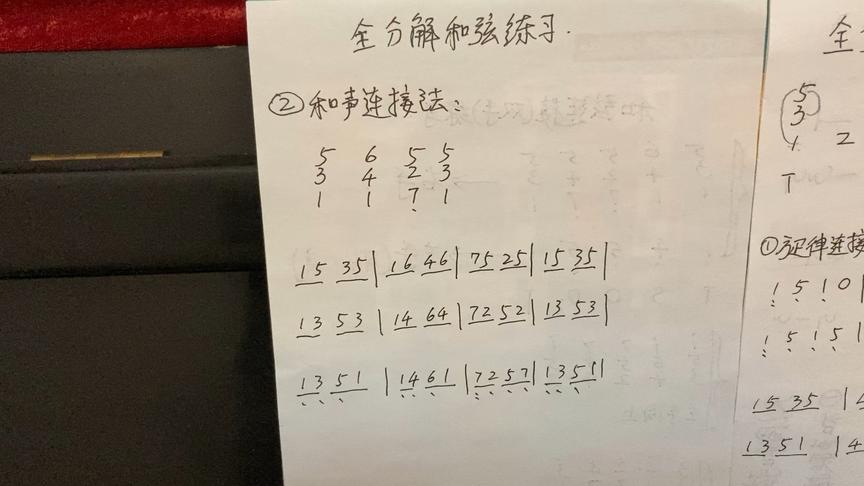 全分解和弦练习.
②和声连接法:
5 6 5 5
3 4 2 3
1 1 7̣ 1
15 35 | 16 46 | 75 25 | 15 35 |
13 53 | 14 64 | 72 52 | 13 53 |
1351 | 1461 | 7257 | 1351 |
全
5
3
1 2
T
①旋律连接
1 5 1 0 |
1 5 1 5 |
15 35 | 4
13 51 | 4